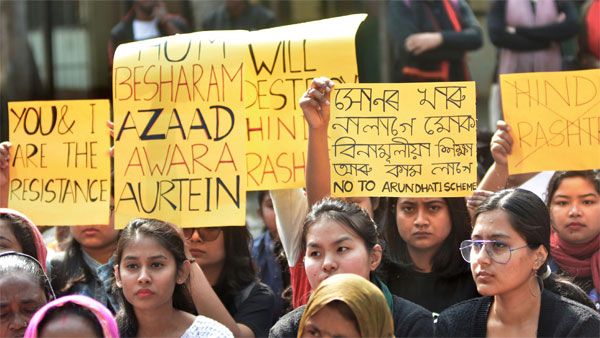 YOU & I
ARE THE
RESISTANCE
HUM
BESHARAM
AZAAD
AWARA
AURTEIN
WILL
DESTR
HIN
RASH
সোনৰ খাৰু
নালাগে মোক
বিনামূলীয়া শিক্ষা
আৰু কাম লাগে
NO TO ARUNDHATI SCHEME
HIND
RASHT